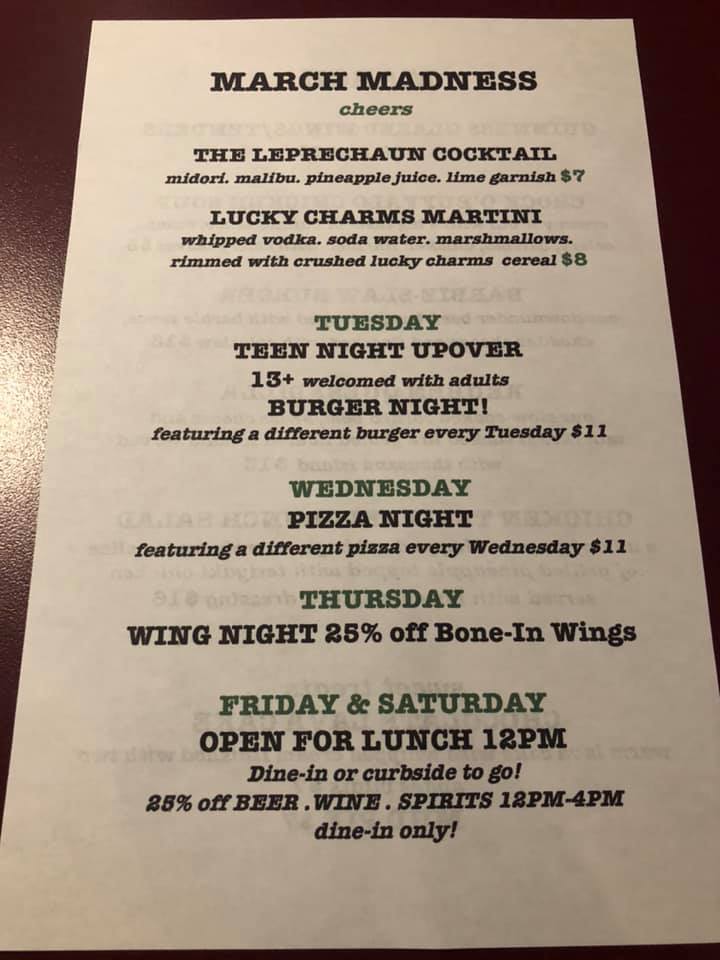 MARCH MADNESS
cheers
THE LEPRECHAUN COCKTAIL
midori. malibu. pineapple juice. lime garnish $7
LUCKY CHARMS MARTINI
whipped vodka. soda water. marshmallows.
rimmed with crushed lucky charms cereal $8
TUESDAY
TEEN NIGHT UPOVER
13+ welcomed with adults
BURGER NIGHT!
featuring a different burger every Tuesday $11
WEDNESDAY
PIZZA NIGHT
featuring a different pizza every Wednesday $11
THURSDAY
WING NIGHT 25% off Bone-In Wings
FRIDAY & SATURDAY
OPEN FOR LUNCH 12PM
Dine-in or curbside to go!
25% off BEER . WINE . SPIRITS 12PM-4PM
dine-in only!